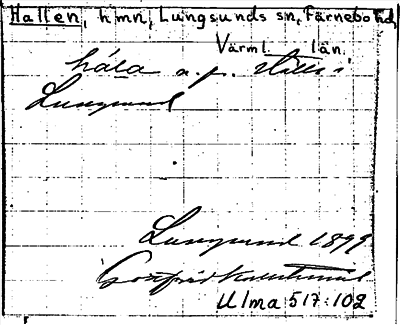 Hallen, hmn, Lungsunds sn, Färnebo hd,
Värml. län.
håla a. p. ställe i
Lungsund
Lungsund 1899
Gottfrid Kallstenius
Ulma 517:102